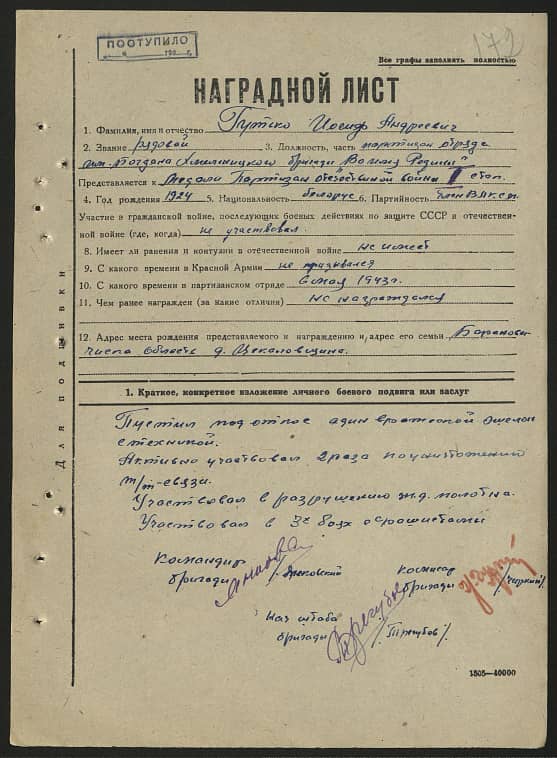 ПОСТУПИЛО
172
Все графы заполнять полностью
НАГРАДНОЙ ЛИСТ
1. Фамилия, имя и отчество Гутько Иосиф Андреевич
2. Звание рядовой 3. Должность, часть партизан отряда
им. Богдана Хмельницкого бригады "За нашу Родину"
Представляется к Медали Партизан отечественной войны II степ.
4. Год рождения 1924 5. Национальность белорус 6. Партийность член ВЛКСМ
Участие в гражданской войне, последующих боевых действиях по защите СССР и отечествен-
ной войне (где, когда) не участвовал
8. Имеет ли ранения и контузии в отечественной войне не имеет
9. С какого времени в Красной Армии не призывался
10. С какого времени в партизанском отряде 6 мая 1943 г.
11. Чем ранее награжден (за какие отличия) не награждался
12. Адрес места рождения представляемого к награждению и адрес его семьи Баранови-
чиска область д.
Для подшивки
1. Краткое, конкретное изложение личного боевого подвига или заслуг
Пустил под откос один вражеской эшелон
с техникой.
Активно участвовал 2 раза по уничтожению
т/т-связи.
Участвовал в разрушению ж.д. полотна.
Участвовал в 3х боях с фашистами
Командир
бригады
Комисар
бригады
Нач штаба
бригады /Трегубов/
1505—40000